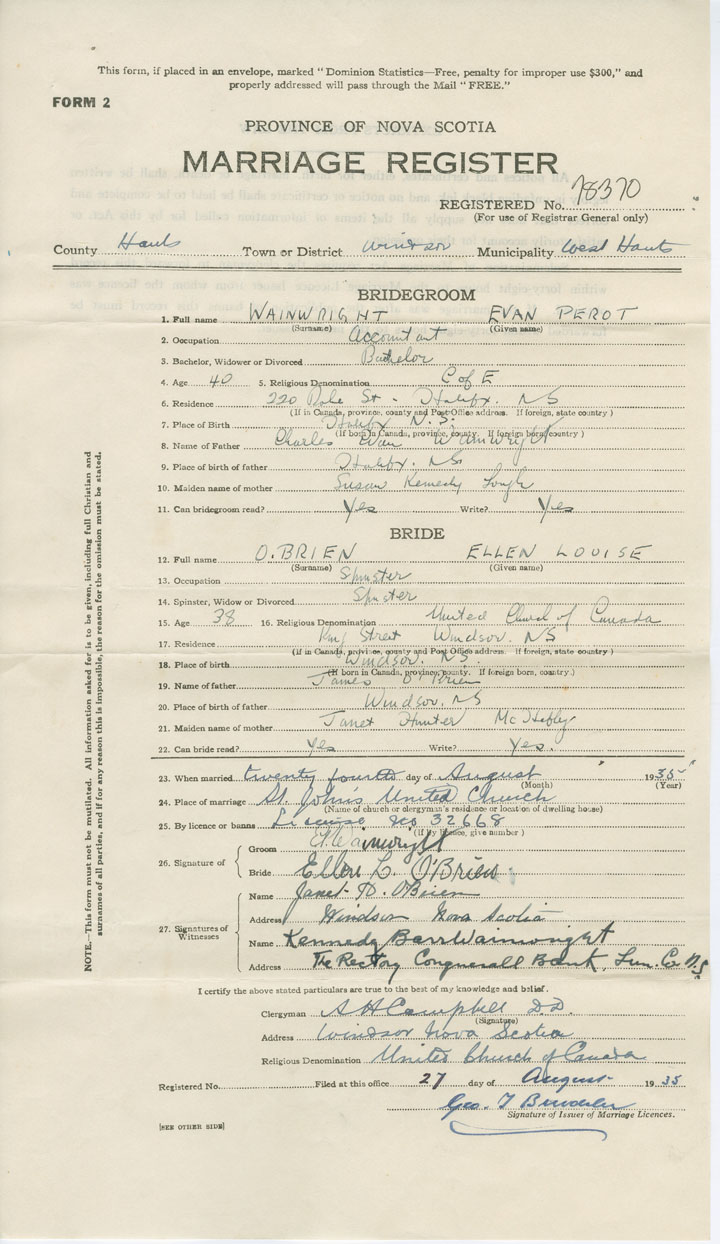 This form, if placed in an envelope, marked "Dominion Statistics—Free, penalty for improper use $300," and
properly addressed will pass through the Mail "FREE."
FORM 2
PROVINCE OF NOVA SCOTIA
MARRIAGE REGISTER
REGISTERED No. 78370
(For use of Registrar General only)
County Hants Town or District Windsor Municipality West Hants
BRIDEGROOM
1. Full name WAINWRIGHT EVAN PEROT
(Surname) (Given name)
2. Occupation Accountant
3. Bachelor, Widower or Divorced Bachelor
4. Age 40 5. Religious Denomination C of E
6. Residence 220 St - Halifax. NS
(If in Canada, province, county and Post Office address. If foreign, state country)
7. Place of Birth Halifax N.S.
(If born in Canada, province, county. If foreign born, country)
8. Name of Father Charles Evan Wainwright
9. Place of birth of father Halifax. NS
10. Maiden name of mother Susan Kennedy
11. Can bridegroom read? Yes Write? Yes
BRIDE
12. Full name O.BRIEN ELLEN LOUISE
(Surname) (Given name)
13. Occupation Spinster
14. Spinster, Widow or Divorced Spinster
15. Age 38 16. Religious Denomination United Church of Canada
17. Residence King Street Windsor. NS
(If in Canada, province, county and Post Office address. If foreign, state country)
18. Place of birth Windsor. NS.
(If born in Canada, province, county. If foreign born, country.)
19. Name of father James O'Brien
20. Place of birth of father Windsor. NS
21. Maiden name of mother Janet Hunter
22. Can bride read? Yes Write? Yes.
23. When married twenty fourth day of August 1935
(Month) (Year)
24. Place of marriage St. John's United Church
(Name of church or clergyman's residence or location of dwelling house)
25. By licence or banns License No 32668
(If by licence, give number)
26. Signature of
Groom E.P. Wainwright
Bride Ellen L. O'Brien
27. Signatures of Witnesses
Name Janet D. O'Brien
Address Windsor Nova Scotia
Name Kennedy Barr Wainwright
Address The Rectory Conquerall Bank, Lun. Co. N.S
I certify the above stated particulars are true to the best of my knowledge and belief.
Clergyman A H Campbell D.D.
(Signature)
Address Windsor Nova Scotia
Religious Denomination United Church of Canada
Registered No. Filed at this office 27 day of August 1935
Geo. T
Signature of Issuer of Marriage Licences.
[SEE OTHER SIDE]
NOTE.—This form must not be mutilated. All information asked for is to be given, including full Christian and
surnames of all parties, and if for any reason this is impossible, the reason for the omission must be stated.